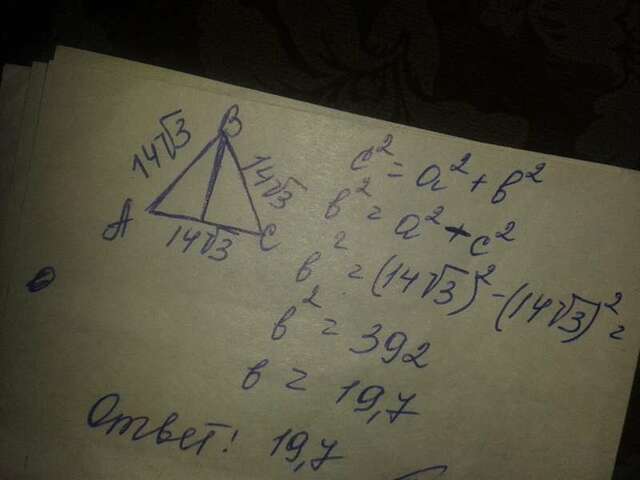 B
14√3
14√3
A
14√3
C
c² = a² + в²
в² = a² - c²
в² = (14√3)² - (14√3)² =
в² = 392
в = 19,7
Ответ: 19,7